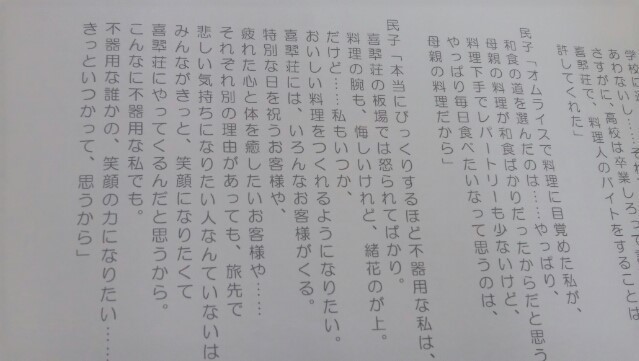 学校に
あわないし……それ、
さすがに、高校は卒業しろって言
喜翆荘で、料理人のバイトをすることは
許してくれた」
民子「オムライスで料理に目覚めた私が、
和食の道を選んだのは……やっぱり、
母親の料理が和食ばかりだったからだと思う
料理下手でレパートリーも少ないけど、
やっぱり毎日食べたいなって思うのは、
母親の料理だから」
民子「本当にびっくりするほど不器用な私は、
喜翆荘の板場では怒られてばかり。
料理の腕も、悔しいけれど、緒花のが上。
だけど……私もいつか、
おいしい料理をつくれるようになりたい。
喜翆荘には、いろんなお客様がくる。
特別な日を祝うお客様や、
疲れた心と体を癒したいお客様や……
それぞれ別の理由があっても、旅先で
悲しい気持ちになりたい人なんていないは
みんながきっと、笑顔になりたくて
喜翆荘にやってくるんだと思うから。
こんなに不器用な私でも。
不器用な誰かの、笑顔の力になりたい……
きっといつかって、思うから」